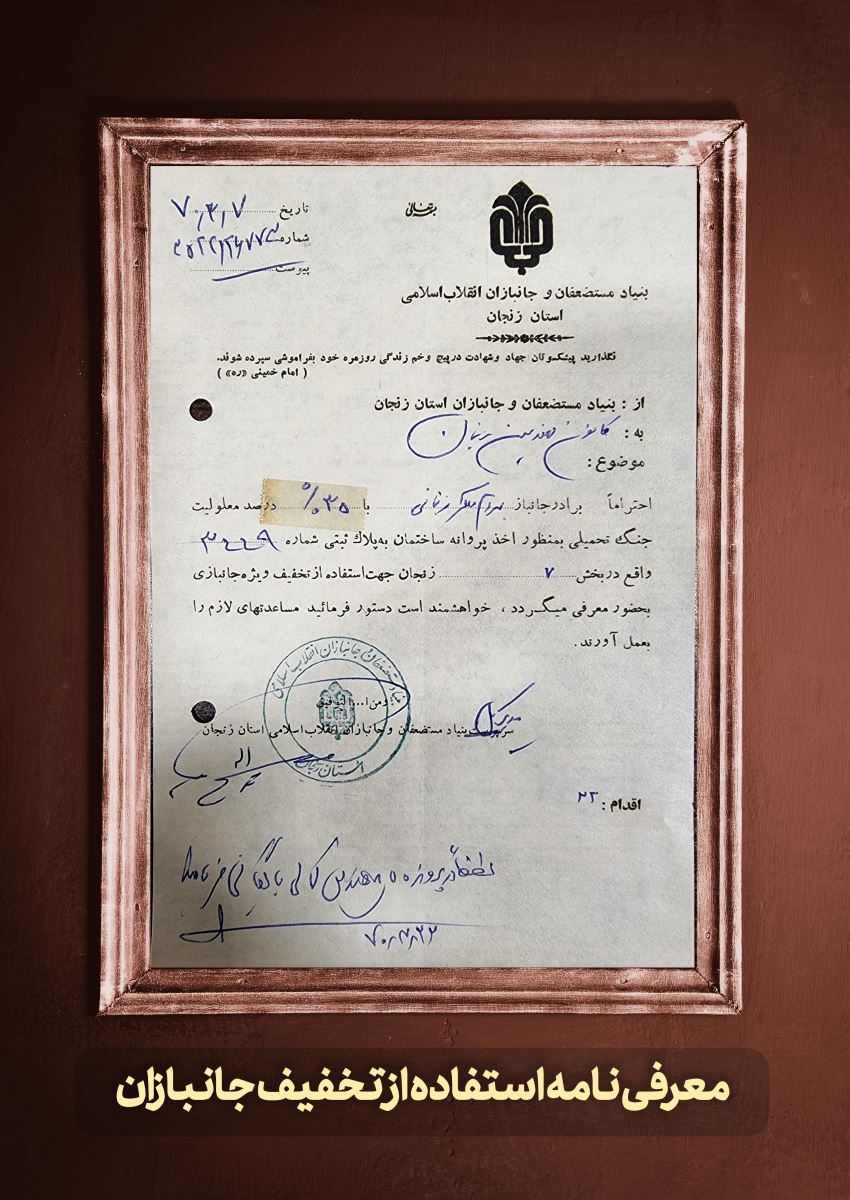 بسمه تعالی
تاریخ ۷۰٫۳٫۷
شماره
پیوست
بنیاد مستضعفان و جانبازان انقلاب اسلامی
استان زنجان
نگذارید پیشکسوتان جهاد وشهادت در پیچ و خم زندگی روزمره خود بفراموشی سپرده شوند.
( امام خمینی «ره» )
از : بنیاد مستضعفان و جانبازان استان زنجان
به : کانون مهندسین زنجان
موضوع :
احتراماً برادر جانباز با ۳۵٪ درصد معلولیت
جنگ تحمیلی بمنظور اخذ پروانه ساختمان به پلاک ثبتی شماره
واقع در بخش ۷ زنجان جهت استفاده از تخفیف ویژه جانبازی
بحضور معرفی میگردد ، خواهشمند است دستور فرمائید مساعدتهای لازم را
بعمل آورند.
ومن ا... التوفیق
سرپرست بنیاد مستضعفان و جانبازان انقلاب اسلامی استان زنجان
مدیر کل
بنیاد مستضعفان و جانبازان انقلاب اسلامی
استان زنجان
اقدام : ۲۲
معرفی نامه استفاده از تخفیف جانبازان